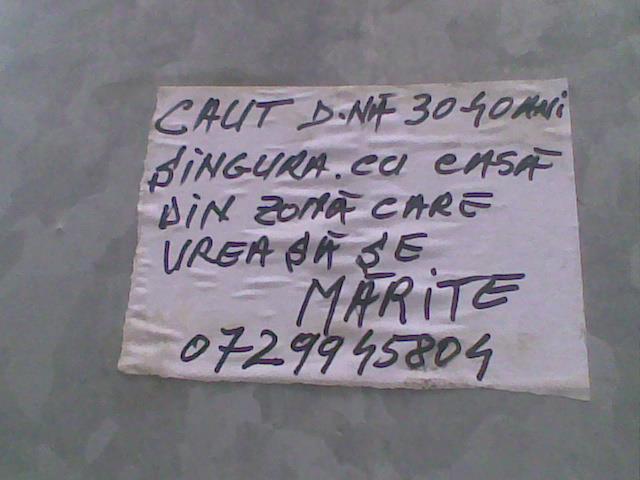 CAUT D.NĂ 30-40 ANi
ȘiNGURA. CU CASĂ
DiN ZONĂ CARE
VREA ȘĂ ȘE
MĂRiTE
0729945804